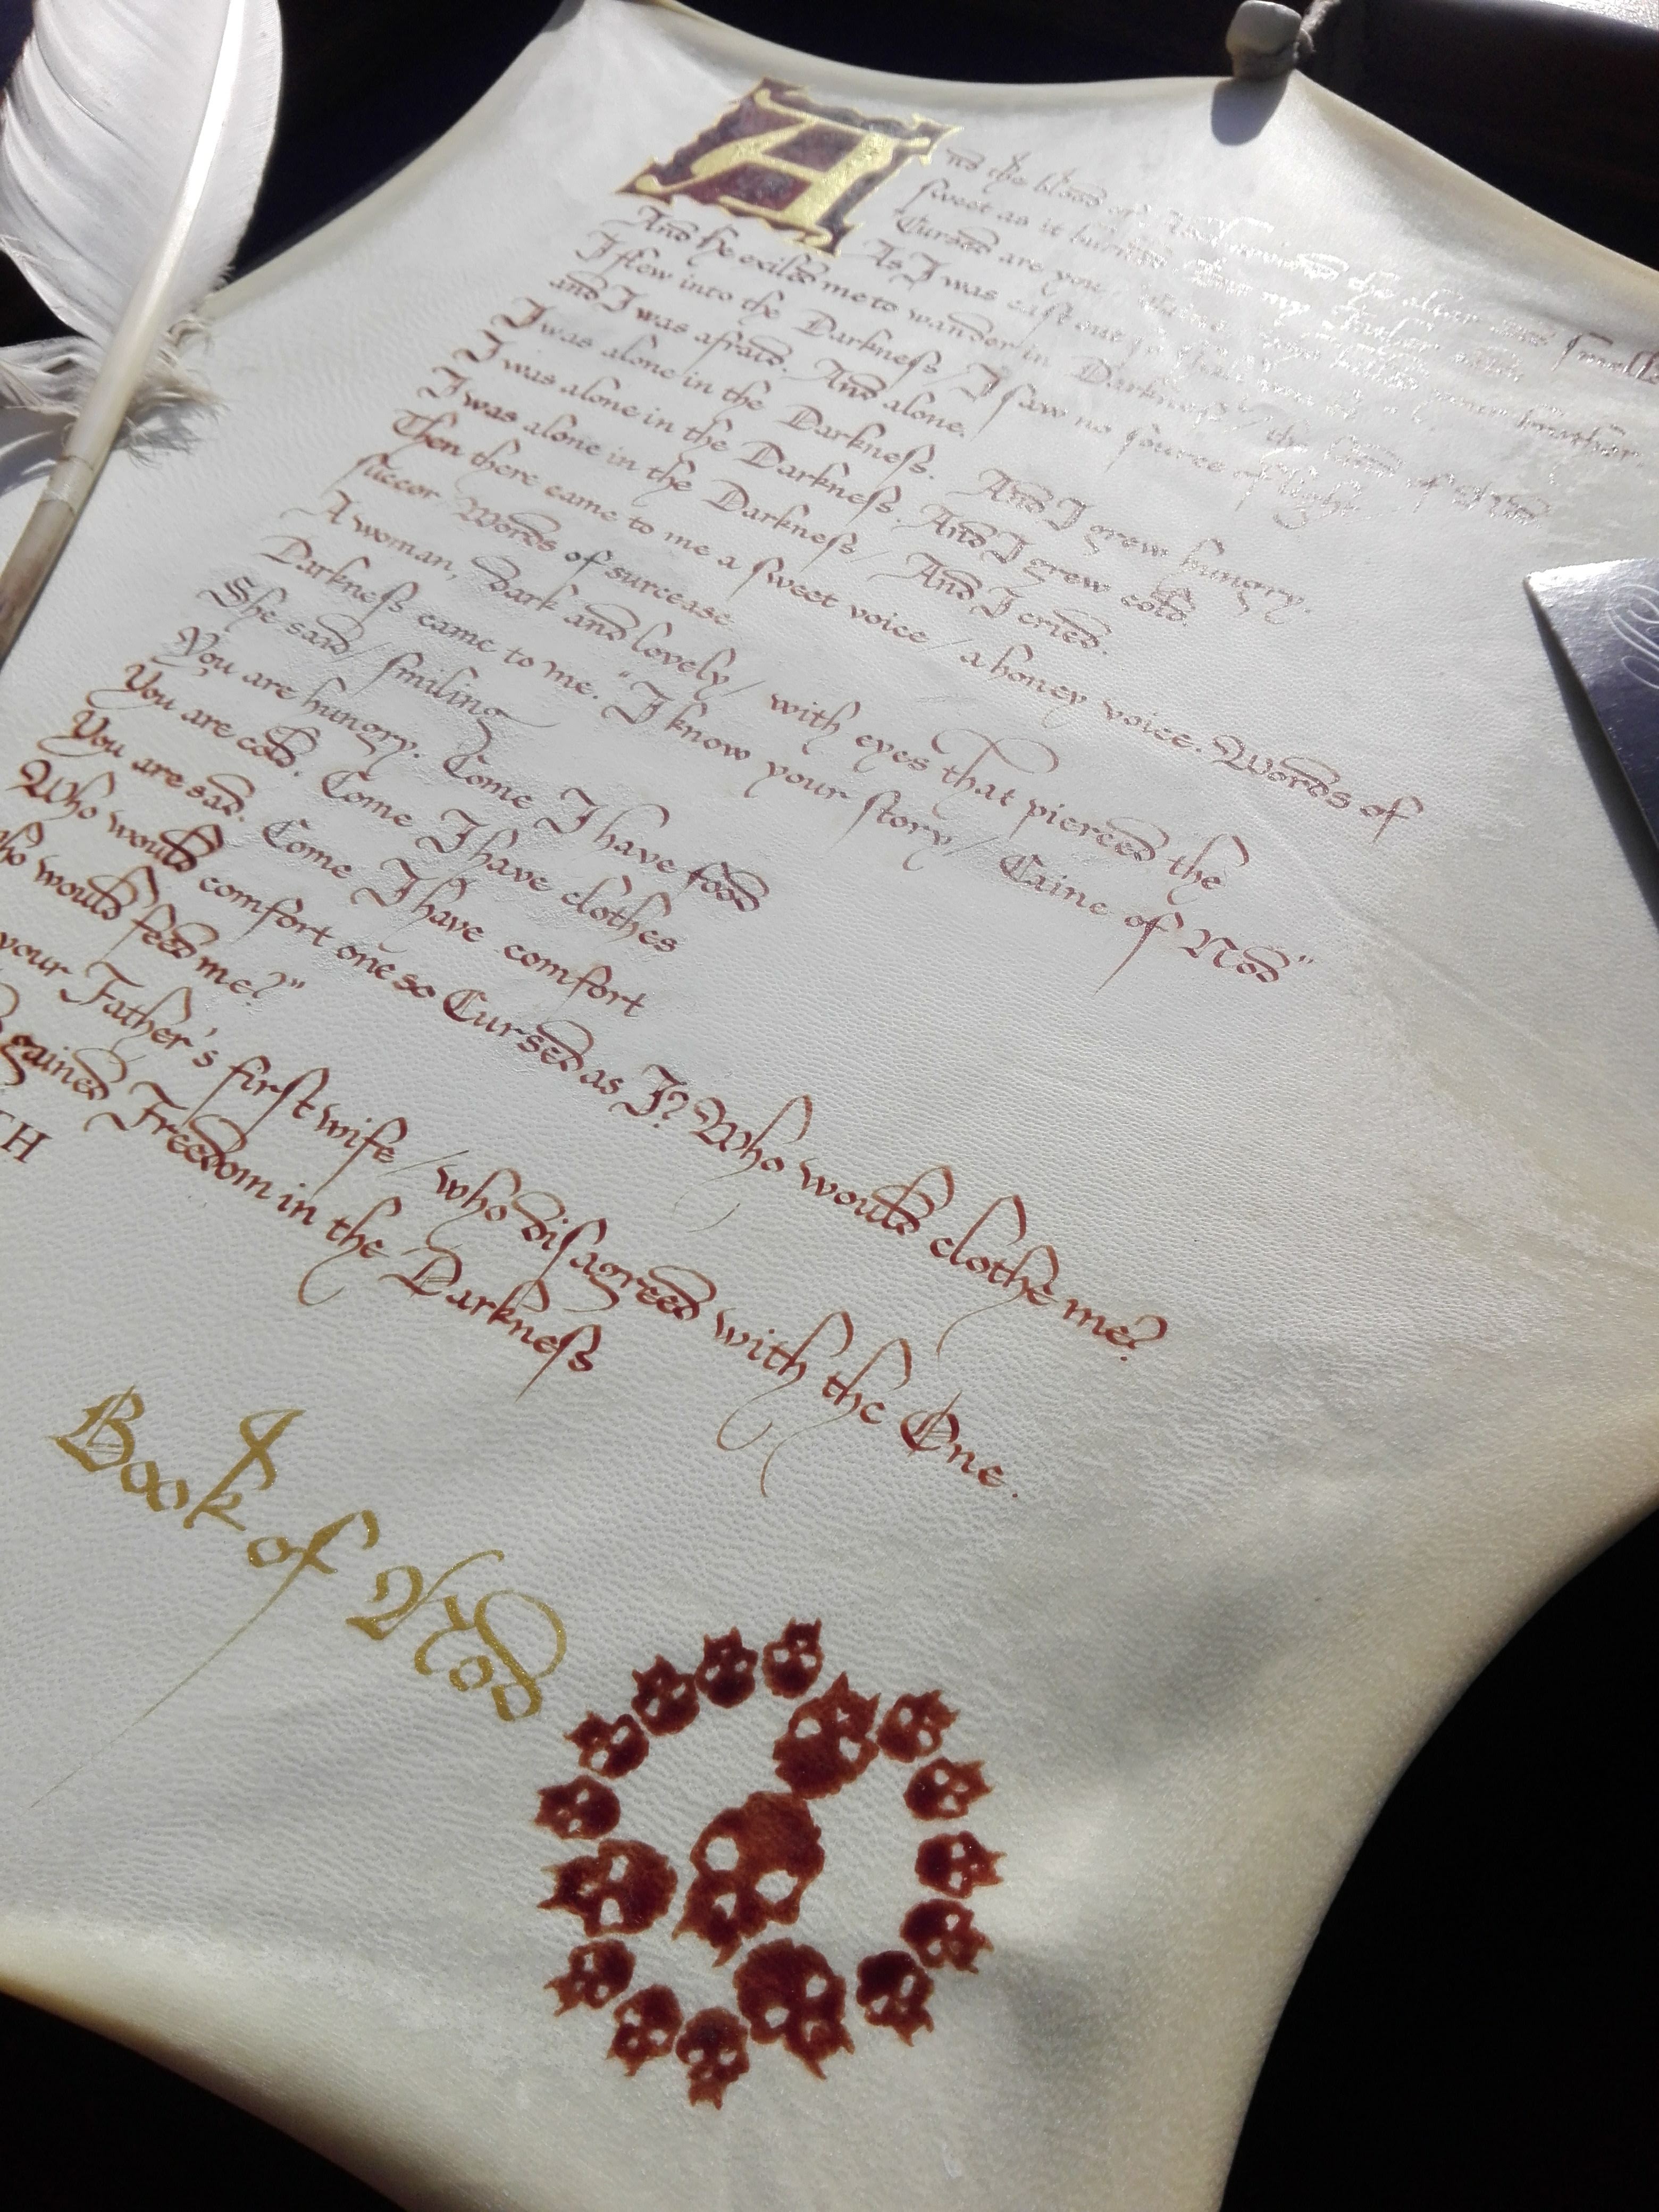 And the blood of covered the altar and smelled
sweet as it burned. But my Father said
"Cursed are you, Caine, who killed your brother.
As I was cast out so shall you be."
And He exiled me to wander in Darkness / the Land of Nod
I flew into the Darkness / I saw no source of light
and I was afraid. And alone.
I was alone in the Darkness. And I grew hungry.
I was alone in the Darkness. And I grew cold.
I was alone in the Darkness / And I cried.
Then there came to me a sweet voice / a honey voice. Words of
succor. Words of surcease.
A woman, Dark and lovely / with eyes that pierced the
Darkness came to me. "I know your story / Caine of Nod"
She said / smiling
You are hungry. Come I have food
You are cold. Come I have clothes
You are sad. Come I have comfort
Who would comfort one so Cursed as I? Who would clothe me?
who would feed me?"
your Father's first wife / who disagreed with the One.
gained Freedom in the Darkness
TH
Book of Nod